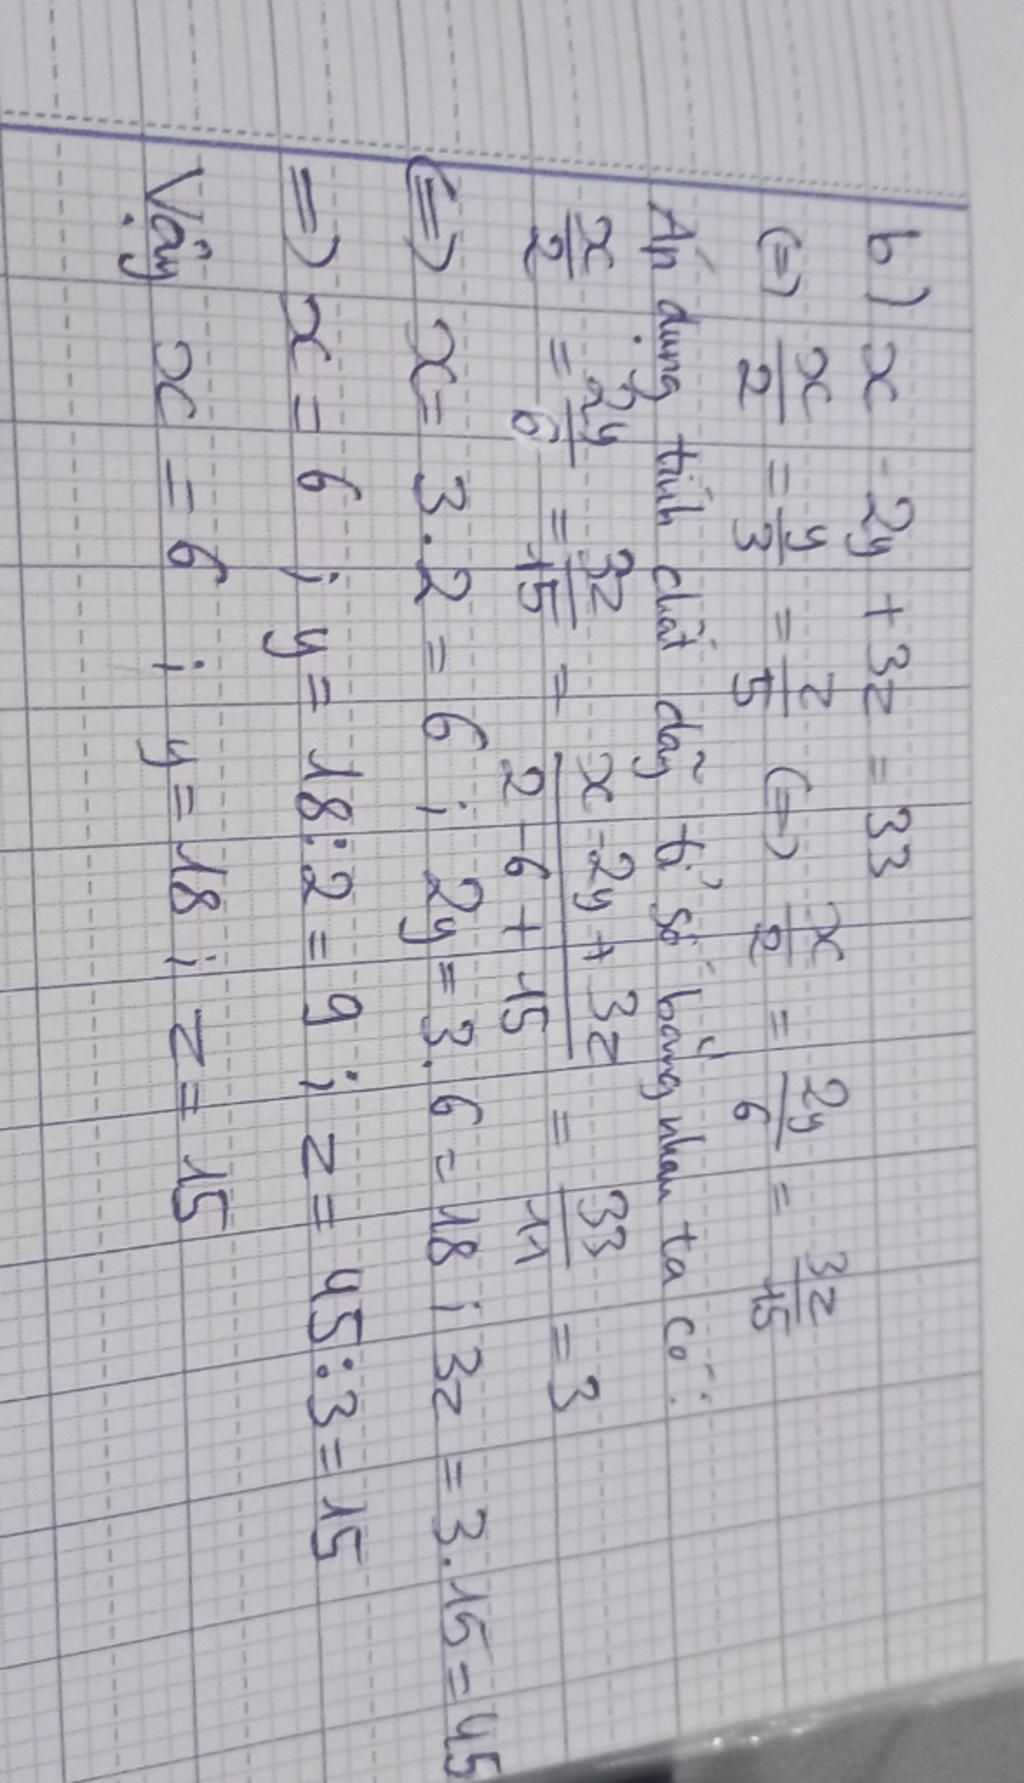 b) x - 2y + 3z = 33
(=) x/2 = y/3 = z/5 (=) x/2 = 2y/6 = 3z/15
Áp dụng tính chất dãy tỉ số bằng nhau ta có:
x/2 = 2y/6 = 3z/15 = (x - 2y + 3z)/(2 - 6 + 15) = 33/11 = 3
(=) x = 3.2 = 6 ; 2y = 3.6 = 18 ; 3z = 3.15 = 45
=) x = 6 ; y = 18:2 = 9 ; z = 45:3 = 15
Vậy x = 6 ; y = 18 ; z = 15